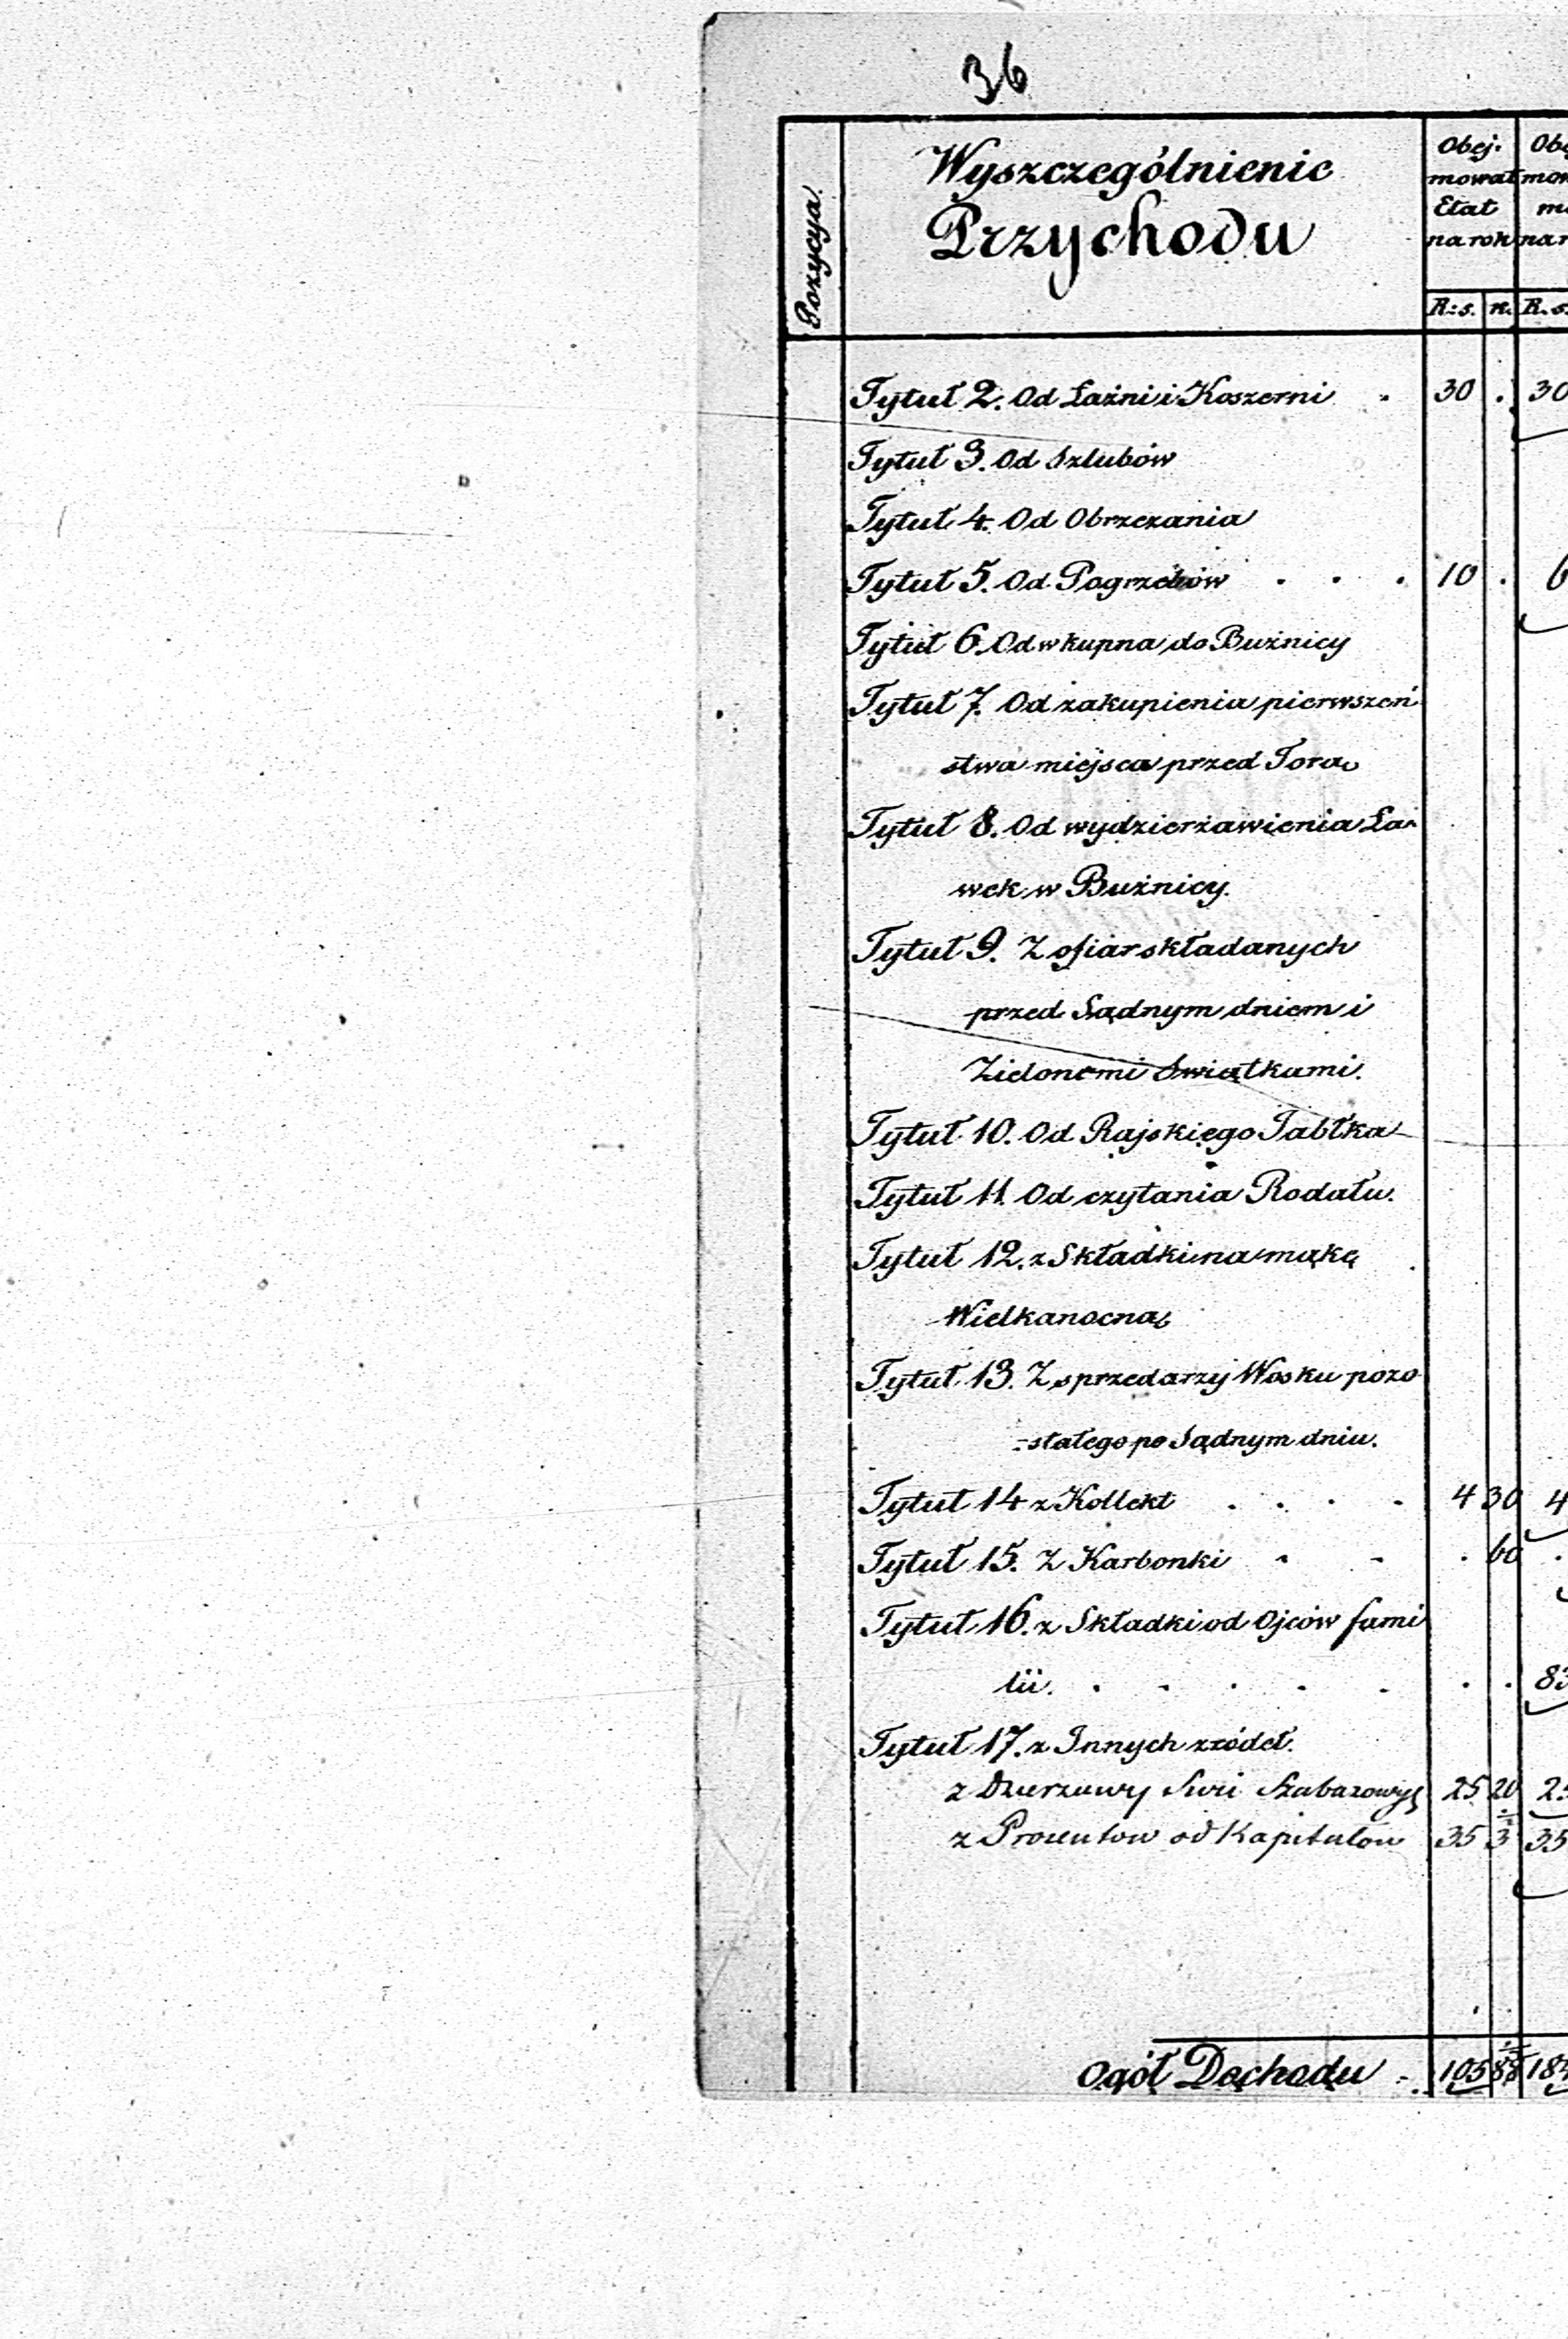 36
Pozycya.
Wyszczególnienie
Przychodu
Obej-
mował
Etat
na rok
R:s. k. R.s.
Tytuł 2. Od Łaźni i Koszerni . 30 . 30
Tytuł 3. Od Szlubów
Tytuł 4. Od Obrzezania
Tytuł 5. Od Pogrzebów . . . 10 . 6
Tytuł 6. Od wkupna do Bużnicy
Tytuł 7. Od zakupienia pierwszeń
stwa miejsca przed Torą
Tytuł 8. Od wydzierżawienia Ła-
wek w Bużnicy.
Tytuł 9. Z ofiar składanych
przed Sądnym dniem i
Zielonemi Swiątkami.
Tytuł 10. Od Rajskiego Jabłka
Tytuł 11. Od czytania Rodału.
Tytuł 12. z Składki na mąkę
Wielkanocną
Tytuł 13. Z sprzedarzy Wosku pozo
-stałego po Sądnym dniu.
Tytuł 14 z Kollekt . . . . 4 30 4
Tytuł 15. Z Karbonki - - . 60 .
Tytuł 16. z Składki od Ojców fami
lii. . . . . . . . 83
Tytuł 17. z Innych zródeł.
z Dzierzawy Swić Szabasowyh 25 20 25
z Procentow od Kapitałów 35 3 35
Ogół Dochodu - 105 88